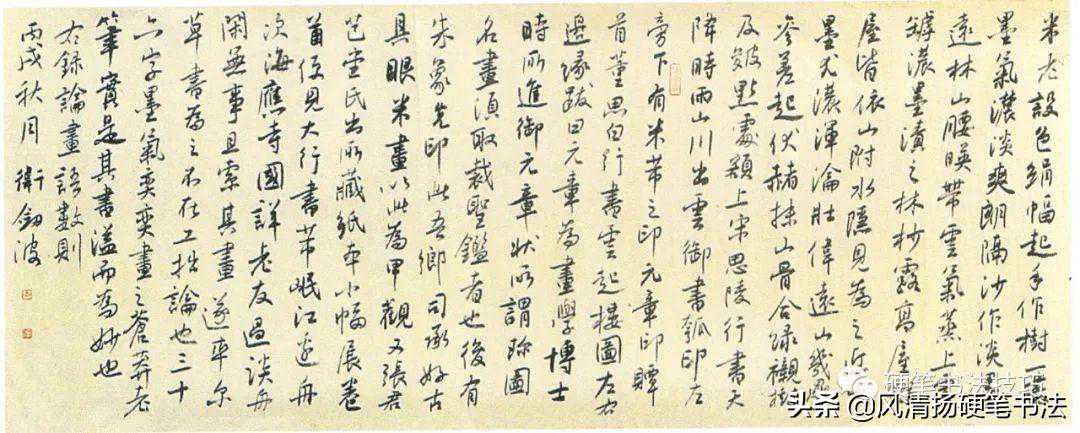 米老設色絹幅起手作樹一叢
墨氣濃淡爽朗隔沙作淡墨
遠林山腰暎帶雲氣蒸上
罅濃墨漬之林杪露高屋
屋皆依山附水隱見為之近山
墨尤濃渾淪壯偉遠山幾疊
參差起伏赭抹山骨合綠襯樹
及皴點處穎上宋思陵行書天
降時雨山川出雲御書瓠印左
旁下有米芾之印元章印贉
首董思白行書雲起樓圖左右
邊緣跋曰元章為畫學博士
時所進御元章狀所謂珎圖
名畫須取裁聖鑑者也後有
朱象先印此吾鄉司承好古
具眼米畫以此為甲觀又張君
芑堂氏出所藏紙本小幅展卷
首便見大行書芾岷江還舟
次海應寺國詳老友過談舟
閑無事且索其畫遂率尔
草書為之不在工拙論也三十
六字墨氣奕奕畫之蒼莽老
筆實是其書溢而為妙也
右錄論畫語數則
丙戌秋月 衛劍波
硬笔书法技巧
头条 @风清扬硬笔书法